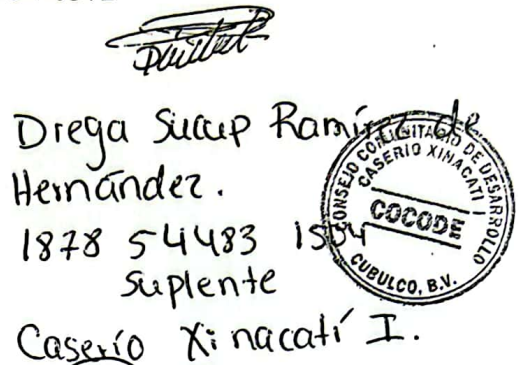 Drega Sucup Ramírez de
Hernández.
1878 54483 1504
Suplente
Caserío Xinacatí I.
CONSEJO COMUNITARIO DE DESARROLLO
CASERIO XINACATI I
COCODE
CUBULCO, B.V.